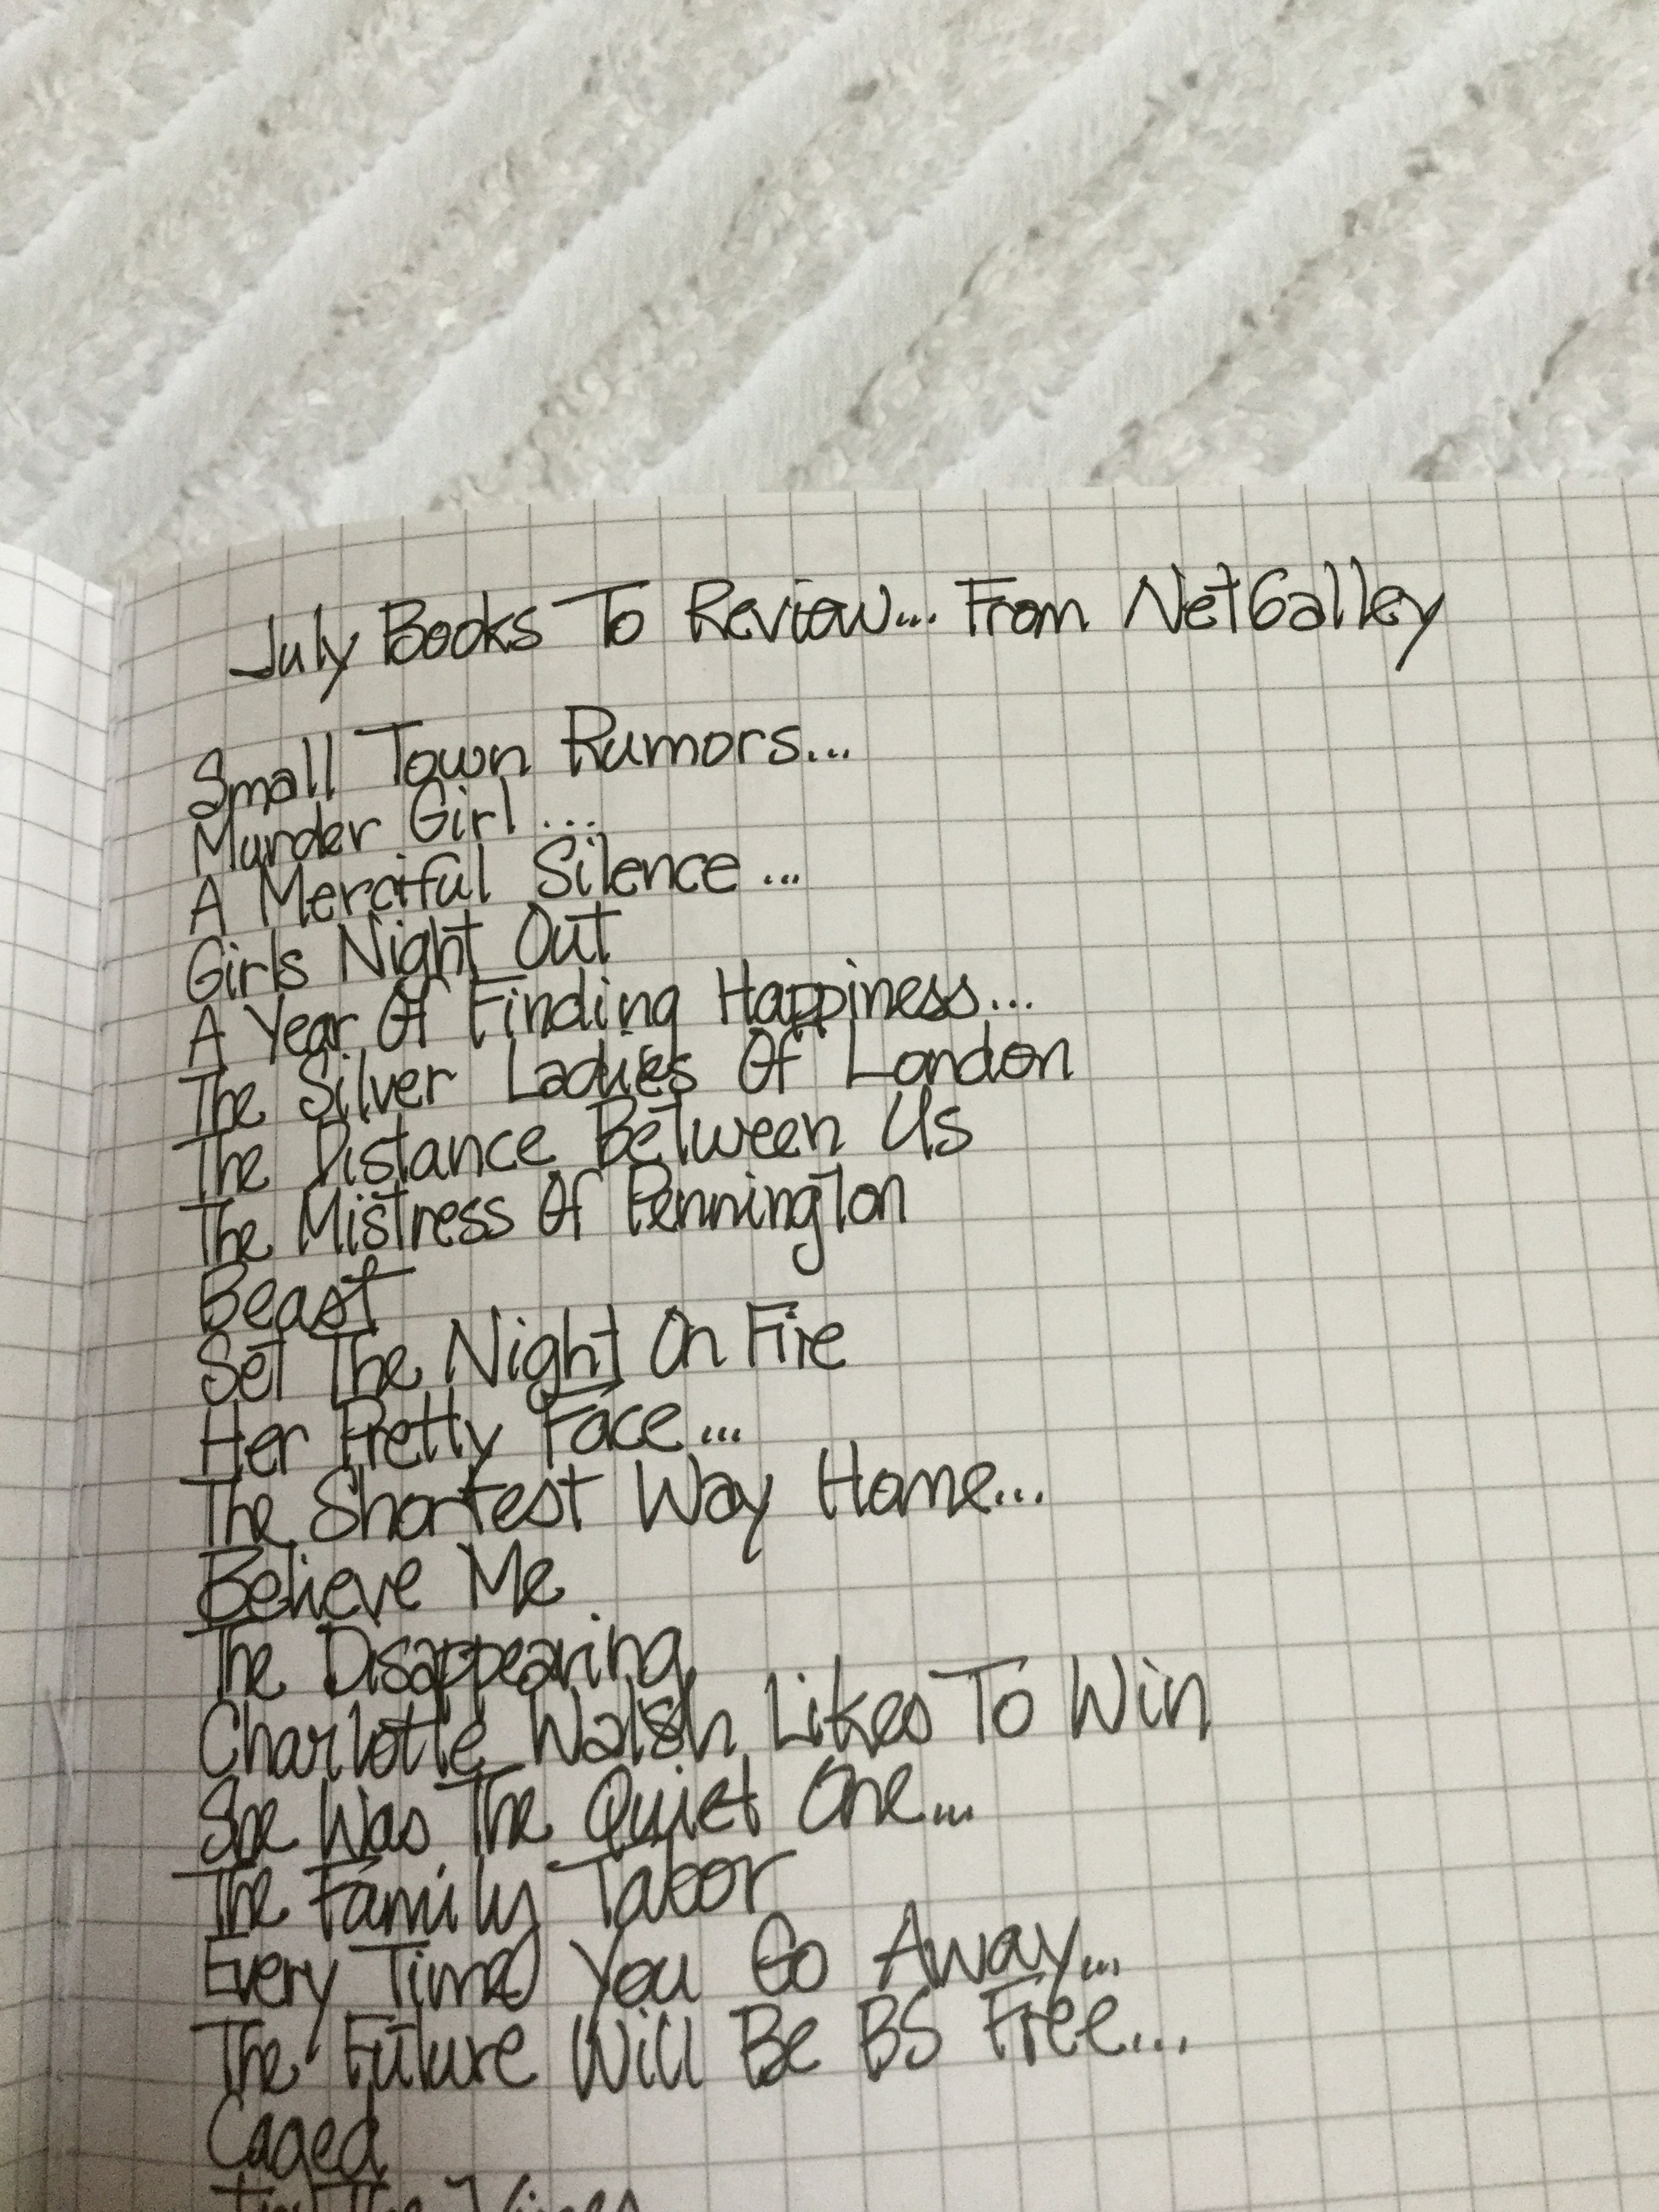 July Books To Review... From NetGalley
Small Town Rumors...
Murder Girl ...
A Merciful Silence ...
Girls Night Out
A Year Of Finding Happiness...
The Silver Ladies Of London
The Distance Between Us
The Mistress Of Pennington
Beast
Set The Night On Fire
Her Pretty Face...
The Shortest Way Home...
Believe Me
The Disappearing
Charlotte Walsh Likes To Win
She Was The Quiet One...
The Family Tabor
Every Time You Go Away...
The Future Will Be BS Free...
Caged
The